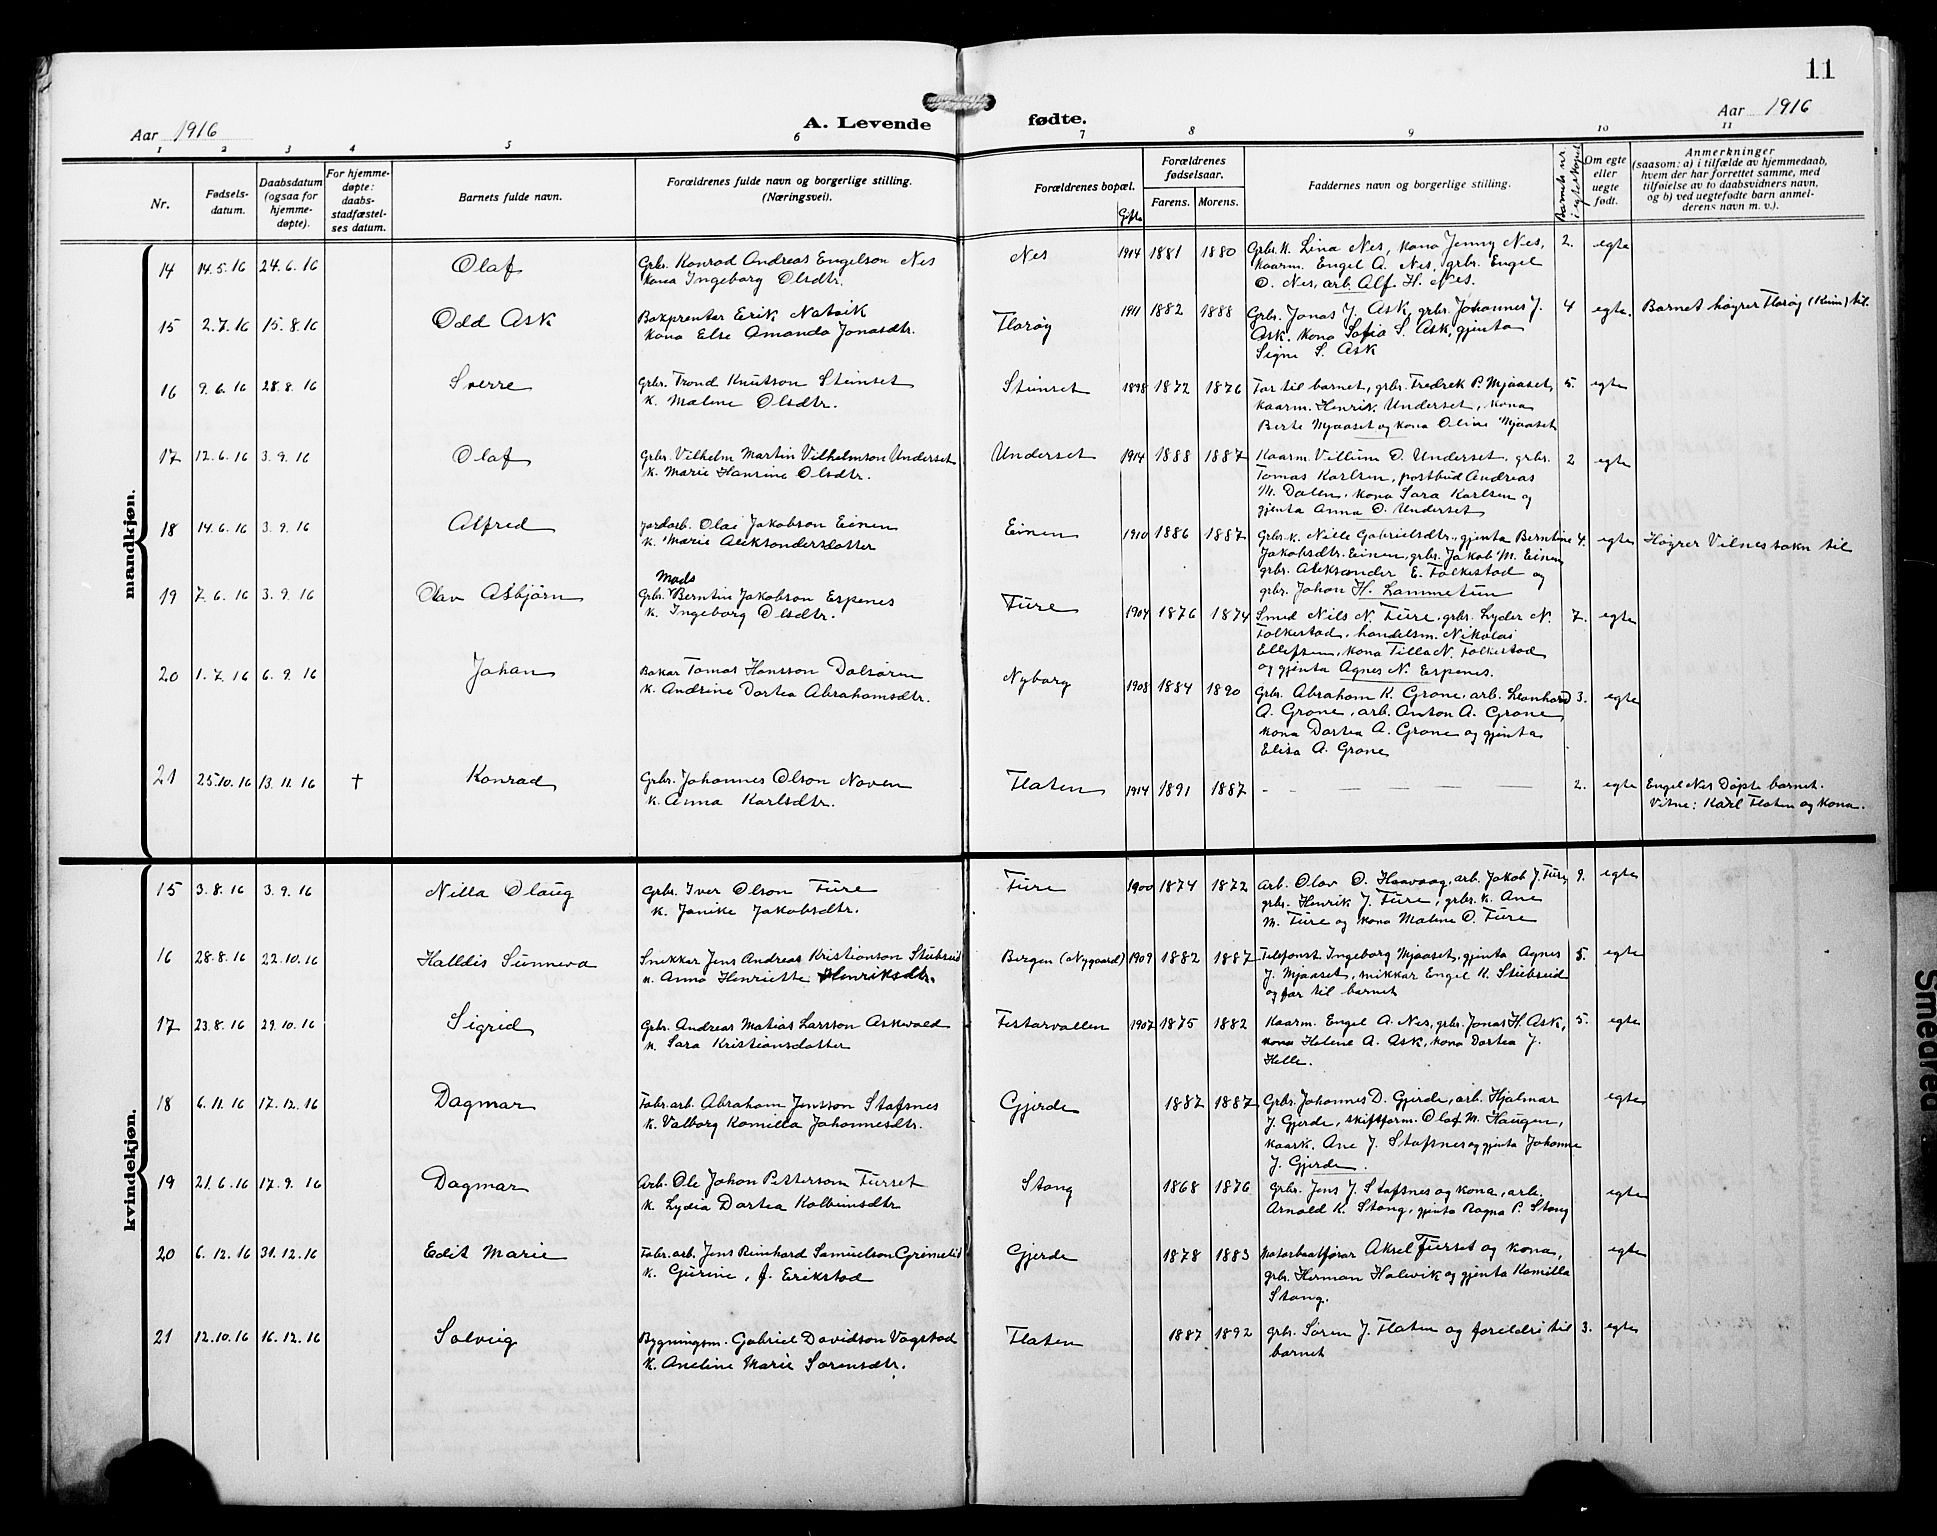 11
Aar 1916
A. Levende fødte.
Aar 1916
1 2 3 4 5 6 7 8 9 10 11
Nr.
Fødsels-
datum.
Daabsdatum
(ogsaa for
hjemme-
døpte).
For hjemme-
døpte:
daabs-
stadfæstel-
ses datum.
Barnets fulde navn.
Forældrenes fulde navn og borgerlige stilling.
(Næringsvei).
Forældrenes bopæl.
Gifte
Forældrenes
fødselsaar.
Farens. Morens.
Faddernes navn og borgerlige stilling.
Barnets nr.
i egteskapet
Om egte
eller
uegte
født.
Anmerkninger
(saasom: a) i tilfælde av hjemmedaab,
hvem der har forrettet samme, med
tilføielse av to daabsvidners navn,
og b) ved uegtefødte barn anmel-
derens navn m. v.).
mandkjøn.
14 14.5.16 24.6.16 Olaf
Grbr. Konrad Andreas Engelson Nes
Kona Ingeborg Olsdtr.
Nes 1914 1881 1880
Grbr.k. Lina Nes, kona Jenny Nes,
kaarm. Engel A. Nes, grbr. Engel
O. Nes, arb. Alf H. Nes.
2. egte
15 2.7.16 15.8.16 Odd Ask
Bokprenter Erik Natvik
Kona Else Amanda Jonasdtr.
Florøy 1911 1882 1888
Grbr. Jonas J. Ask, grbr. Johannes J.
Ask, kona Sofia S. Ask, gjenta
Signe S. Ask
4 egte. Barnet høyrer Florøy (Kinn) til.
16 9.6.16 28.8.16 Sverre
Grbr. Trond Knutson Steinset
k. Malene Olsdtr.
Steinset 1898 1872 1876
Far til barnet, grbr. Fredrek P. Mjaaset,
kaarm. Henrik Underset, kona
Berte Mjaaset og kona Oline Mjaaset
5. egte
17 12.6.16 3.9.16 Olaf
Grbr. Vilhelm Martin Vilhelmson Underset
k. Marie Hansine Olsdtr.
Underset 1914 1888 1887
Kaarm. Villum O. Underset, grbr.
Tomas Karlsen, postbud Andreas
M. Dalen, kona Sara Karlsen og
gjenta Anna O. Underset
2 egte
18 14.6.16 3.9.16 Alfred
Jordarb. Olai Jakobson Einen
k. Marie Aleksandersdotter
Einen 1910 1886 1887
Grbr.k. Nille Gabrielsdtr., gjenta Berntine
Jakobsdtr. Einen, grbr. Jakob M. Einen
grbr. Aleksander E. Folkestad og
grbr. Johan H. Lammetun
4. egte Høyrer Vilnes sokn til
19 7.6.16 3.9.16 Olav Asbjørn
Mads
Grbr. Berntin Jakobson Espenes
k. Ingeborg Olsdtr.
Fure 1904 1876 1874
Smed Nils N. Fure, grbr. Lyder N.
Folkestad, handelsm. Nikolai
Ellefsen, kona Tilla N. Folkestad
og gjenta Agnes N. Espenes.
7. egte
20 1.7.16 6.9.16 Johan
Bakar Tomas Hansson Dalsøren
k. Andrine Dortea Abrahamsdtr.
Nyborg 1908 1884 1890
Grbr. Abraham K. Grane, arb. Leonhard
A. Grane, arb. Anton A. Grane
kona Dortea A. Grane og gjenta
Elisa A. Grane
3. egte
21 25.10.16 13.11.16 † Konrad
Grbr. Johannes Olson Noven
k. Anna Karlsdtr.
Flaten 1914 1891 1887
- — — — —
2. egte Engel Nes Døpte barnet.
Vitne: Karl Flaten og kona.
kvindekjøn.
15 3.8.16 3.9.16 Nilla Olaug
Grbr. Iver Olson Fure
k. Janike Jakobsdtr.
Fure 1900 1874 1872
Arb. Olav O. Haavaag, arb. Jakob J. Fure
grbr. Henrik J. Fure, grbr. k. Ane
M. Fure og kona Malene O. Fure
9. egte
16 28.8.16 22.10.16 Halldis Sunneva
Snekkar Jens Andreas Kristianson Stubseid
k. Anna Henriette Henriksdtr.
Bergen (Nygaard) 1909 1882 1887
Telefonst Ingeborg Mjaaset, gjenta Agnes
J. Mjaaset, snikkar Engel K. Stubseid
og far til barnet
5. egte
17 23.8.16 29.10.16 Sigrid
Grbr. Andreas Matias Larsson Askvold
k. Sara Kristiansdotter
Festarvollen 1907 1875 1882
Kaarm. Engel A. Nes, grbr. Jonas H. Ask,
kona Helene A. Ask, kona Dortea J.
Helle.
5. egte
18 6.11.16 17.12.16 Dagmar
Fabr.arb. Abraham Jensson Stafsnes
k. Valborg Kamilla Johannesdtr.
Gjerde 1887 1887
Grbr. Johannes D. Gjerde, arb. Hjalmar
J. Gjerde, skiftform. Olaf M. Haugen,
kaark. Ane J. Stafsnes og gjenta Johanne
J. Gjerde.
egte
19 21.6.16 17.9.16 Dagmar
Arb. Ole Johan Petterson Furset
k. Lydia Dortea Kolbeinsdtr
Stong 1868 1876
Grbr. Jens J. Stafsnes og kona, arb.
Arnold K. Stong, gjenta Ragna P. Stong
egte
20 6.12.16 31.12.16 Edit Marie
Fabr.arb. Jens Reinhard Samuelson Grimelid
k. Gurine, f. Erikstad
Gjerde 1878 1883
Motorbaatførar Aksel Furset og kona,
grbr. Herman Halsvik og gjenta Kamilla
Stong.
egte
21 12.10.16 16.12.16 Solveig
Bygningsm. Gabriel Davidson Vagstad
k. Aneline Marie Sørensdtr.
Flaten 1887 1892
grbr. Søren J. Flaten og foreldri til
barnet
3. egte
Smedred